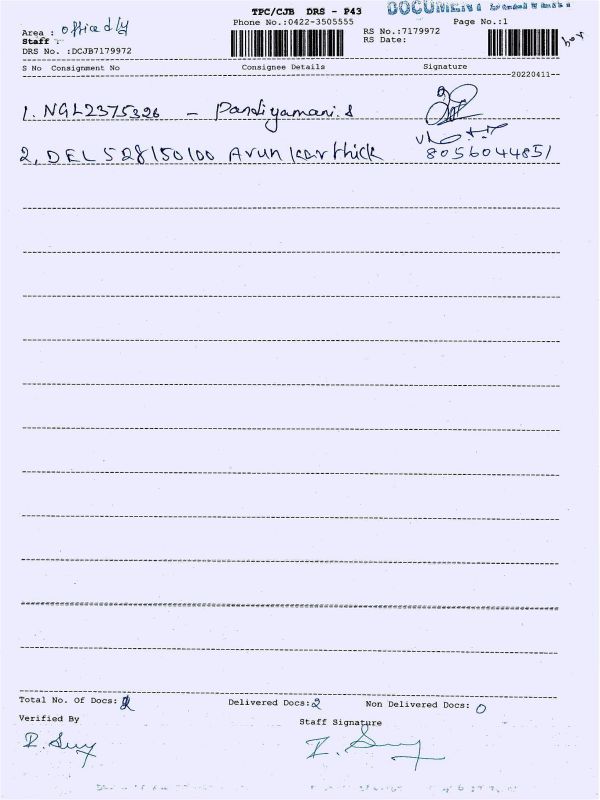 TPC/CJB DRS - P43
DOCUMENT
Phone No.:0422-3505555
Page No.:1
Area : office dly
RS No.:7179972
Staff :
RS Date:
DRS No. :DCJB7179972
S No Consignment No Consignee Details Signature
--20220411--
1. NGL2375326 - Pandiyamani.S
2, DEL528150100 Arun karthick 8056044851
Total No. Of Docs: 2 Delivered Docs:2 Non Delivered Docs: 0
Verified By
Staff Signature